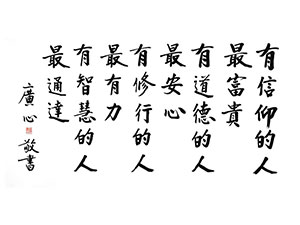 有信仰的人
最富貴
有道德的人
最安心
有修行的人
最有力
有智慧的人
最通達
廣心
敬書